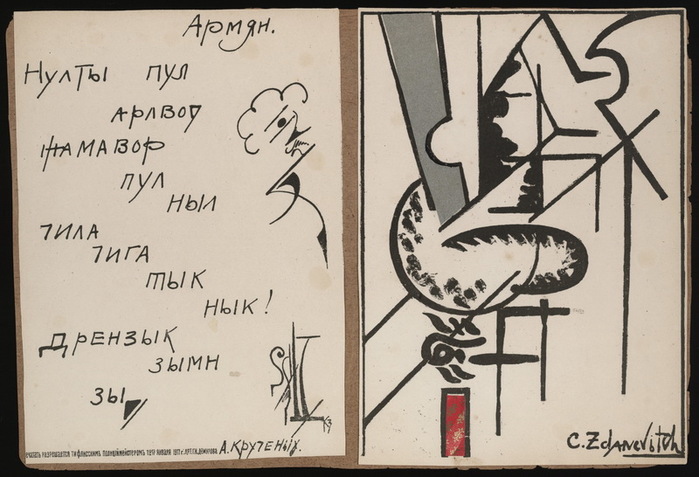 Армян.
Нулты пул
арлвоq
жамавор
пул
ныл
тила
тига
тык
нык!
Дрензык
зымн
зы
А. Крученых.
C. Zdanevitch